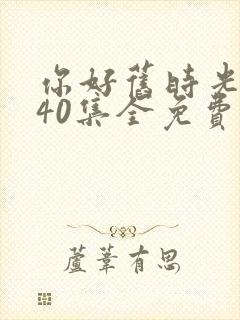 你好舊時光
40集全免費
蘆葦有思